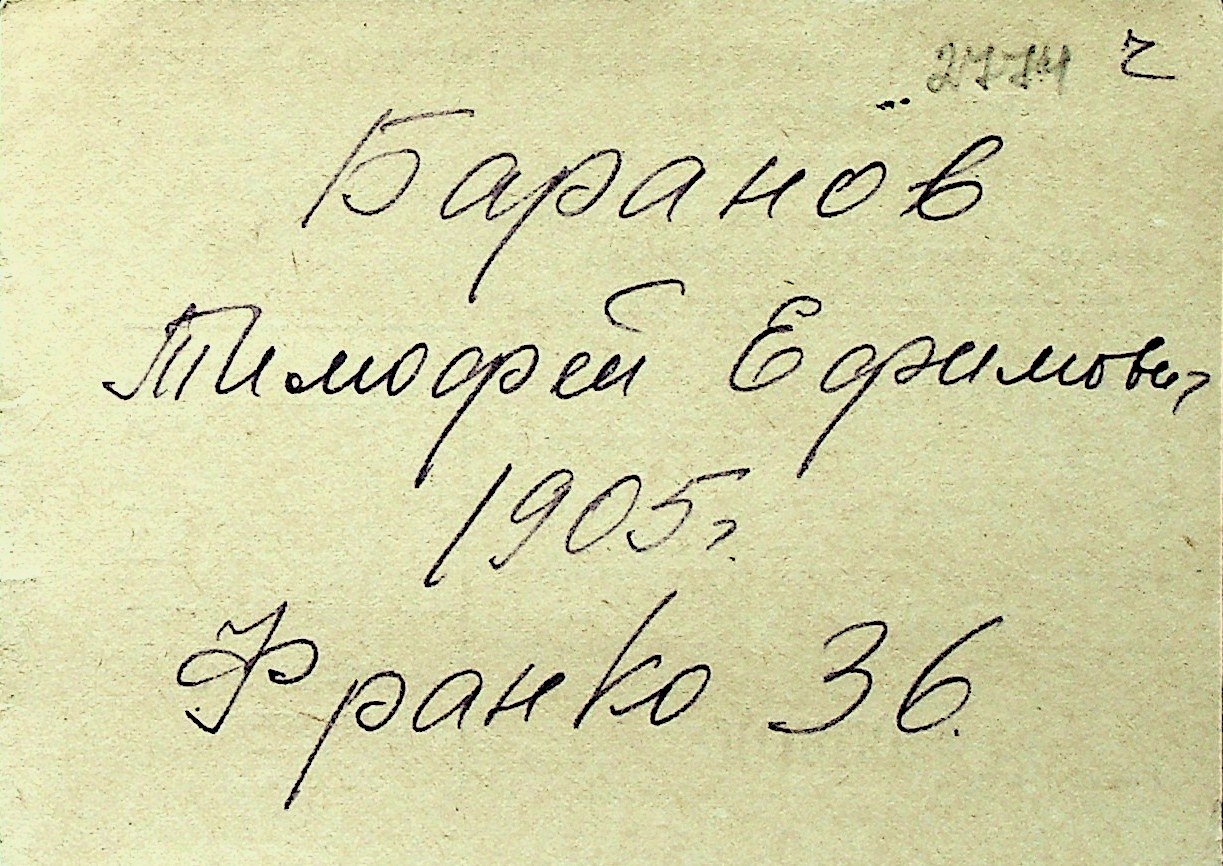 2774 ч
Баранов
Тимофей Ефимович
1905г.
Франко 36.